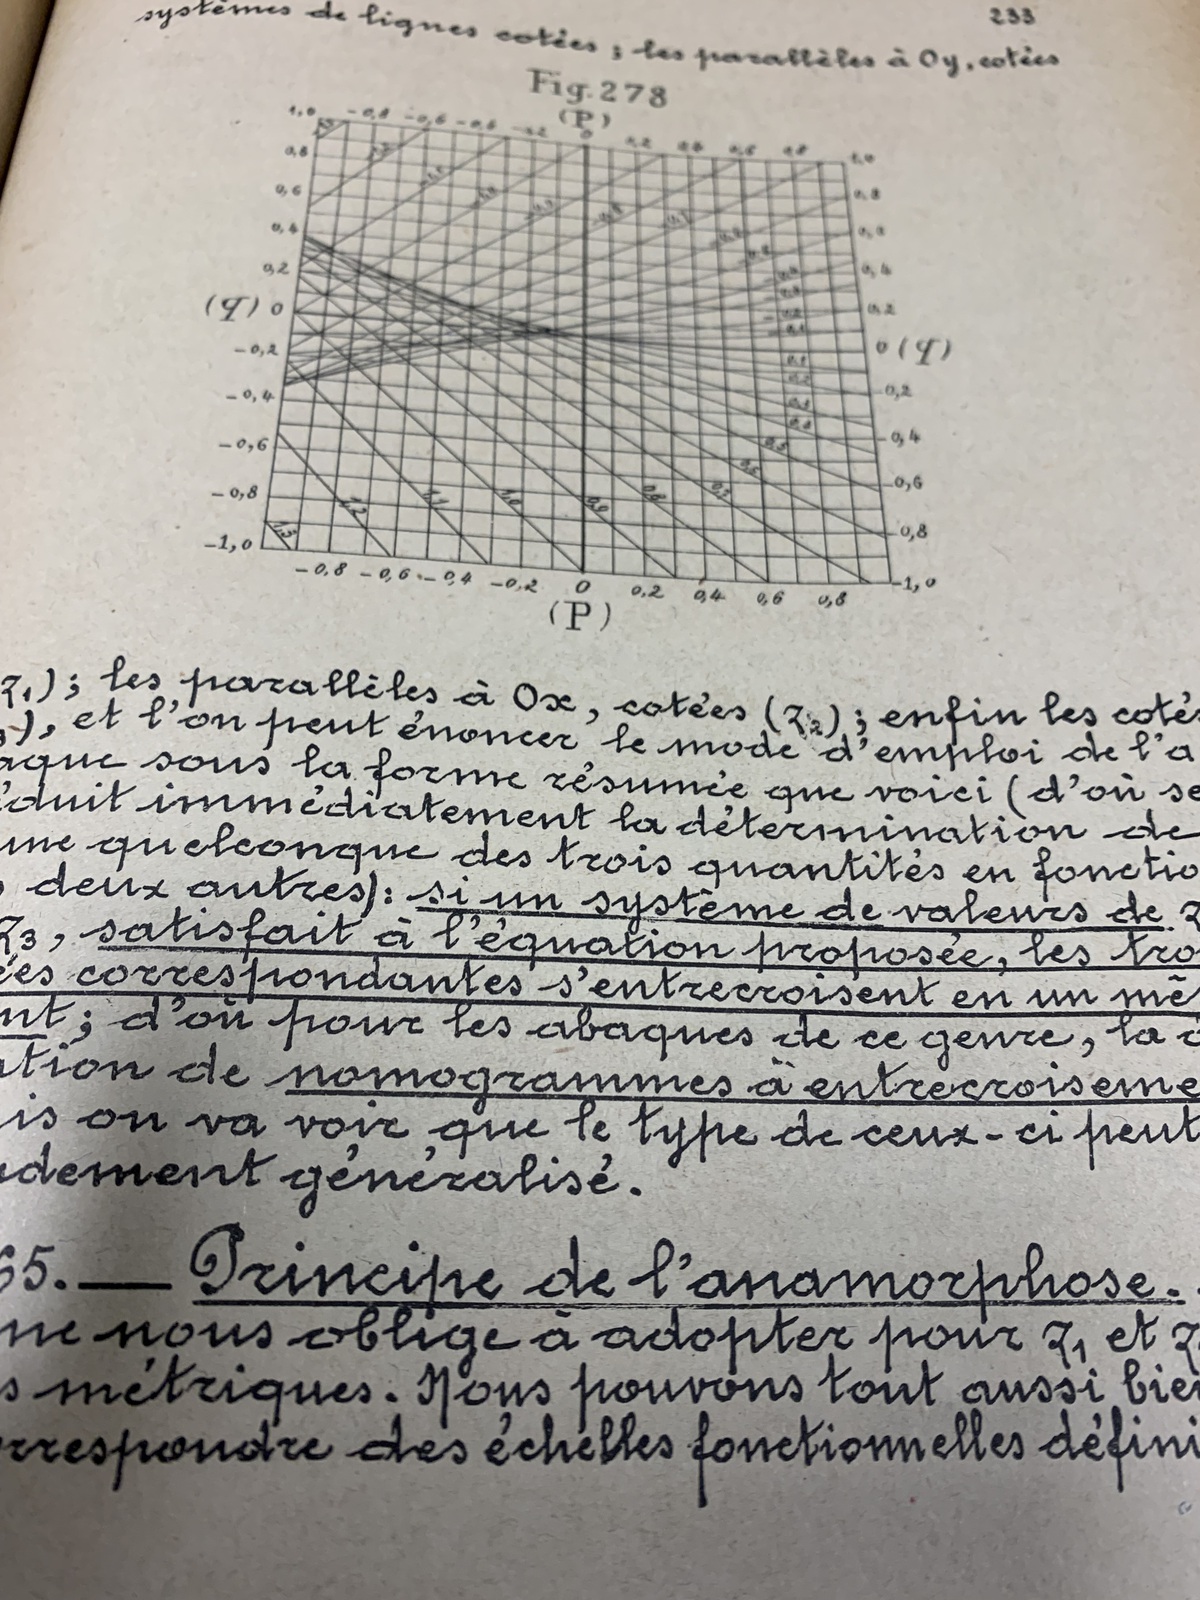 233
systèmes de lignes cotées ; les parallèles à Oy, cotées
Fig. 278
(P)
1,0 -0,8 -0,6 0 0,2 0,6 0,8 1,0
0,8 0,8
0,6
0,4 0,4
0,2 0,2
(q) 0 0 (q)
-0,2 -0,2
-0,4 -0,4
-0,6 -0,6
-0,8 -0,8
-1,0 -1,0
1,3 1,2 1,1 1,0 0,9 0,8 0,7
-0,8 -0,6 -0,4 -0,2 0 0,2 0,4 0,6 0,8
(P)
z₁) ; les parallèles à Ox, cotées (z₂) ; enfin les cotés
), et l'on peut énoncer le mode d'emploi de l'a
aque sous la forme résumée que voici (d'où se
éduit immédiatement la détermination de
une quelconque des trois quantités en fonctio
deux autres) : si un système de valeurs de z
z₃, satisfait à l'équation proposée, les tro
ées correspondantes s'entrecroisent en un mê
nt ; d'où pour les abaques de ce genre, la
ation de nomogrammes à entrecroiseme
is on va voir que le type de ceux-ci peut
dement généralisé.
65. — Principe de l'anamorphose.
ne nous oblige à adopter pour z₁ et z
s métriques. Nous pouvons tout aussi bien
rrespondre des échelles fonctionnelles défini